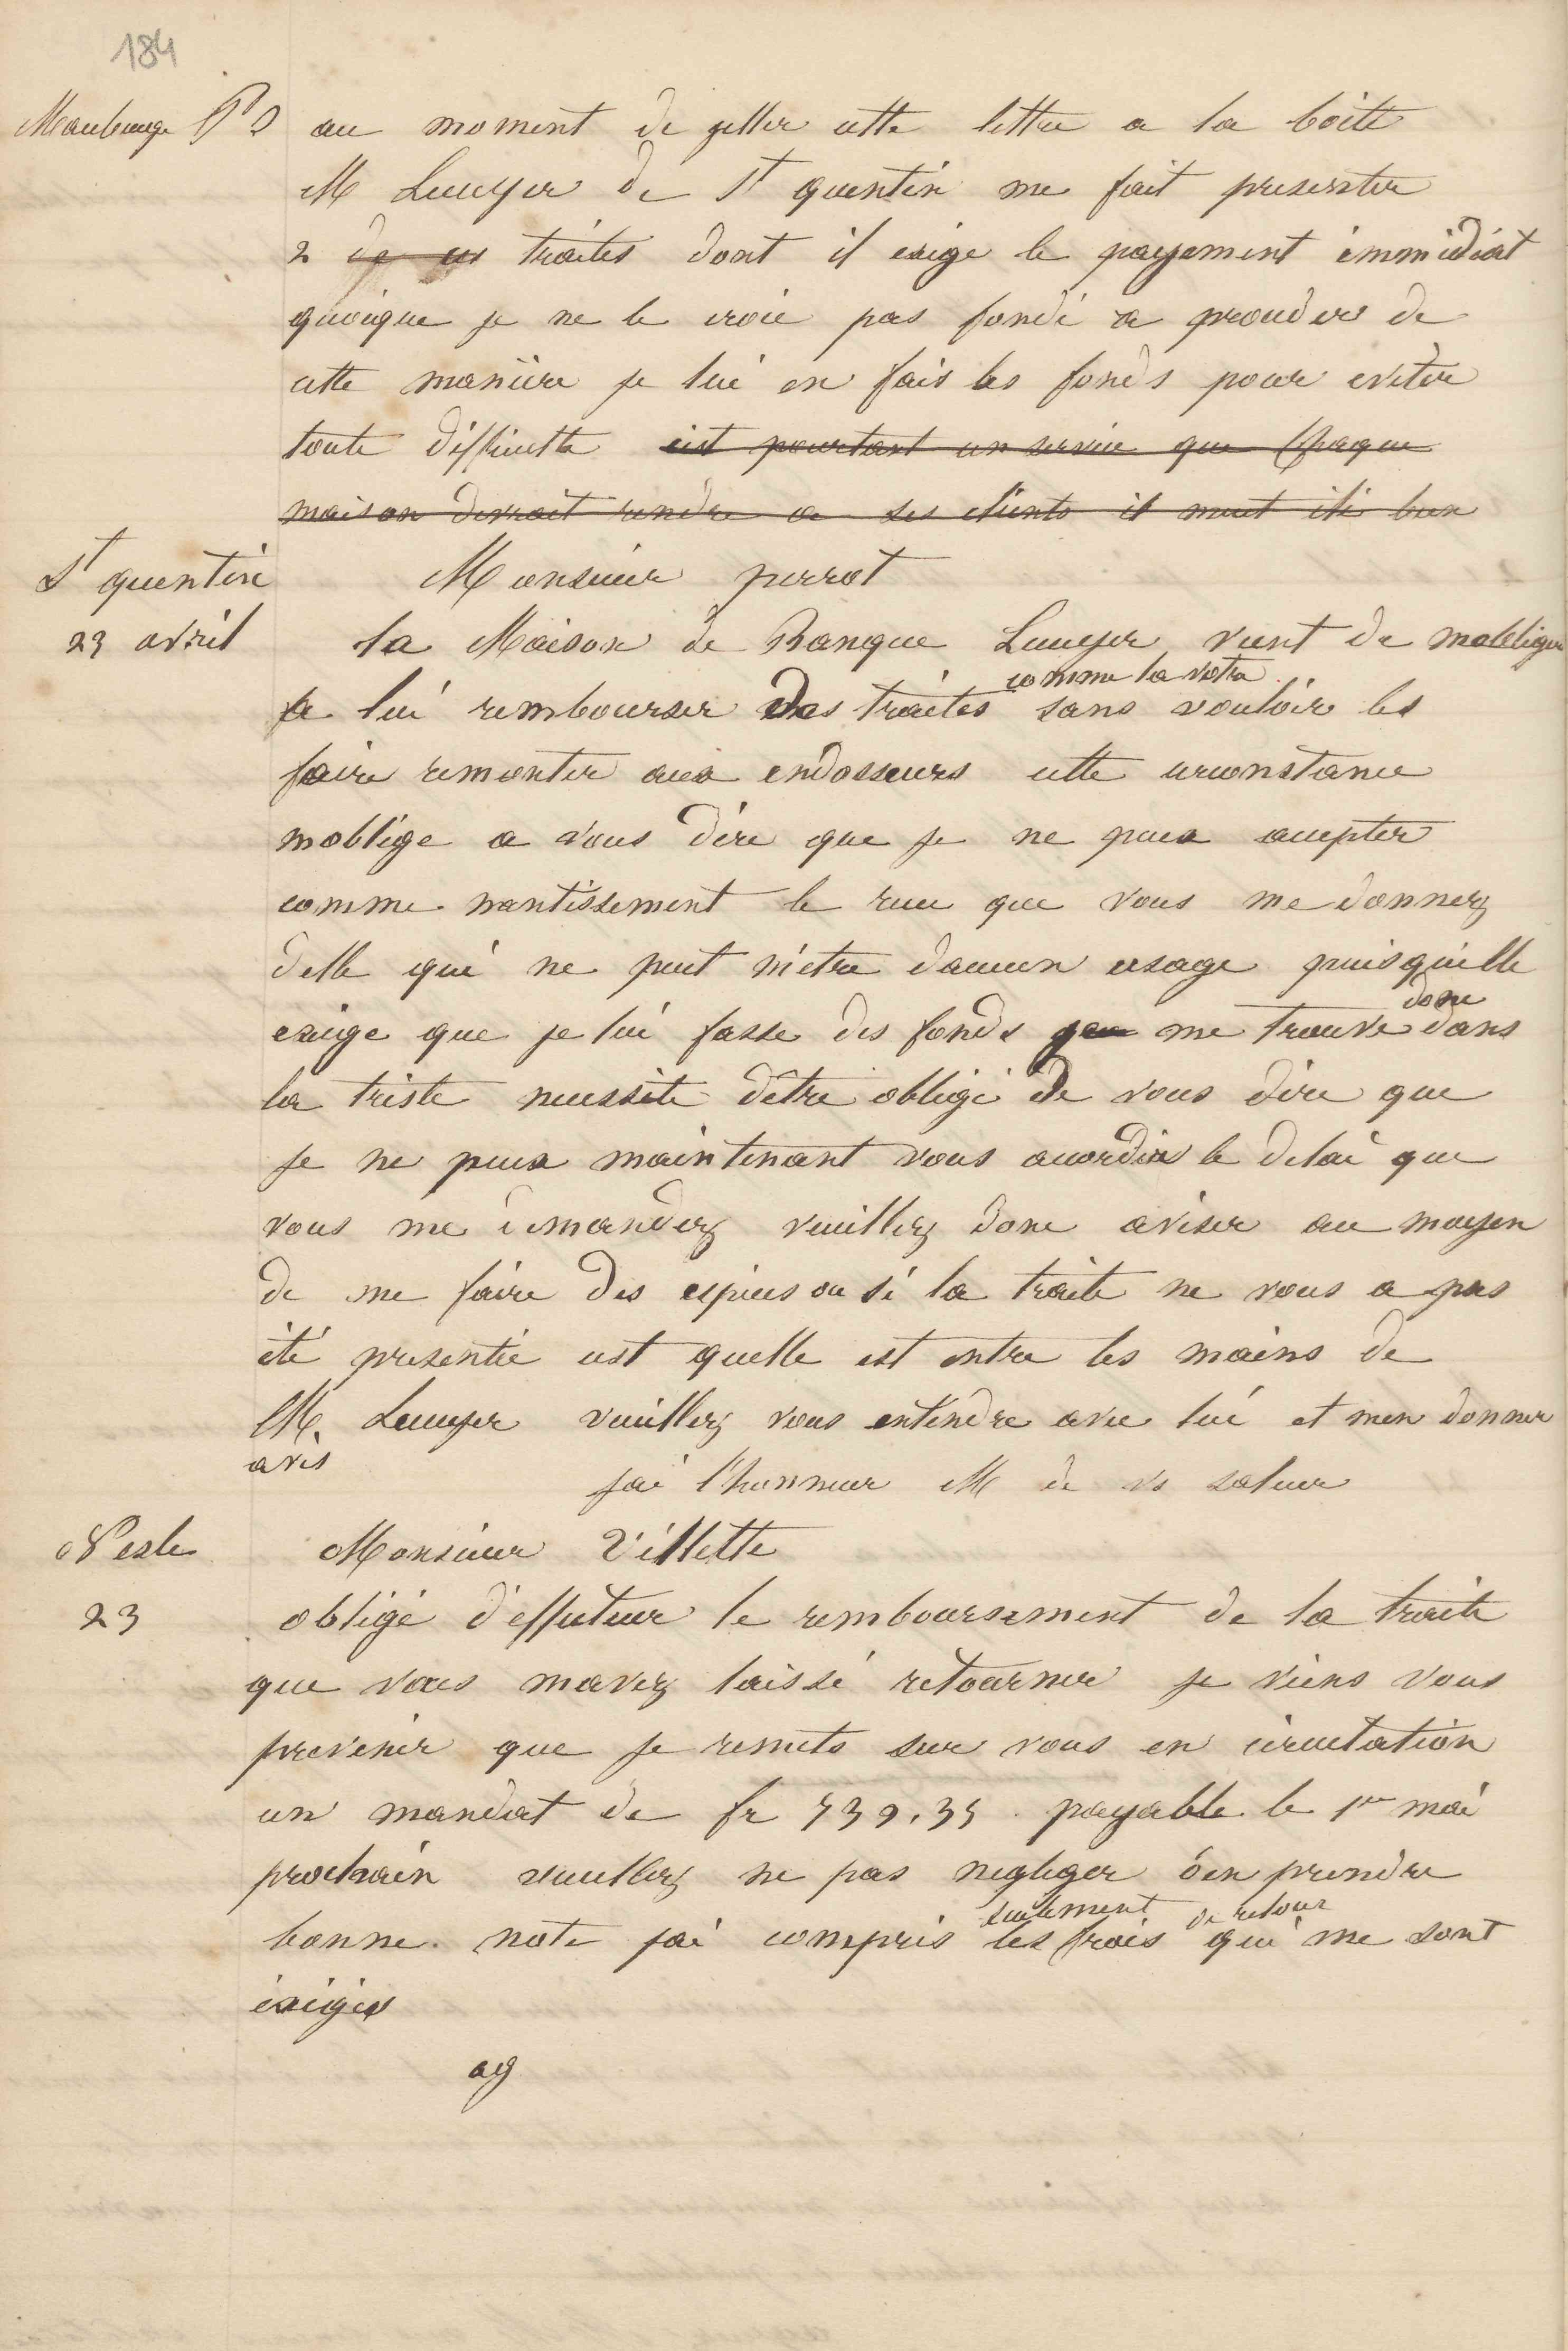 184
Maubeuge P S au moment de jetter cette lettre a la boite
M Lecuyer de St quentin me fait presenter
2 de ces traites dont il exige le payement immédiat
quoique je ne le croie pas fondé a proceder de
cette maniere je lui en fais les fonds pour eviter
toute difficulté cest pourtant un service que chaque
maison devrait rendre a ses clients il meut été bien
St quentin Monsieur perrot
23 avril la Maison de Banque Lecuyer vient de mobliger
comme la votre
a lui rembourser des traites sans vouloir les
faire remonter aux endosseurs cette circonstance
moblige a vous dire que je ne puex accepter
comme nantissement le recu que vous me donnez
delle qui ne peut m'etre daucun usage puisquelle
donc
exige que je lui fasse des fonds je me trouve dans
la triste necessité dêtre obligé de vous dire que
je ne puex maintenant vous accorder le delai que
vous me demandez veuillez donc aviser au moyen
de me faire des especes ou si la traite ne vous a pas
été presentée cest quelle est entre les mains de
M. Lecuyer veuillez vous entendre avec lui et men donner
avis
jai l'honneur M de vs saluer
Nesle Monsieur Villette
23 obligé d'effectuer le remboursement de la traite
que vous mavez laissé retourner je viens vous
prevenir que je remets sur vous en circulation
un mandat de fr 539.35 payable le 1er mai
prochain veuillez ne pas negliger d'en prendre
seulement de retour
bonne note jai compris les frais qui me sont
exigés
ag